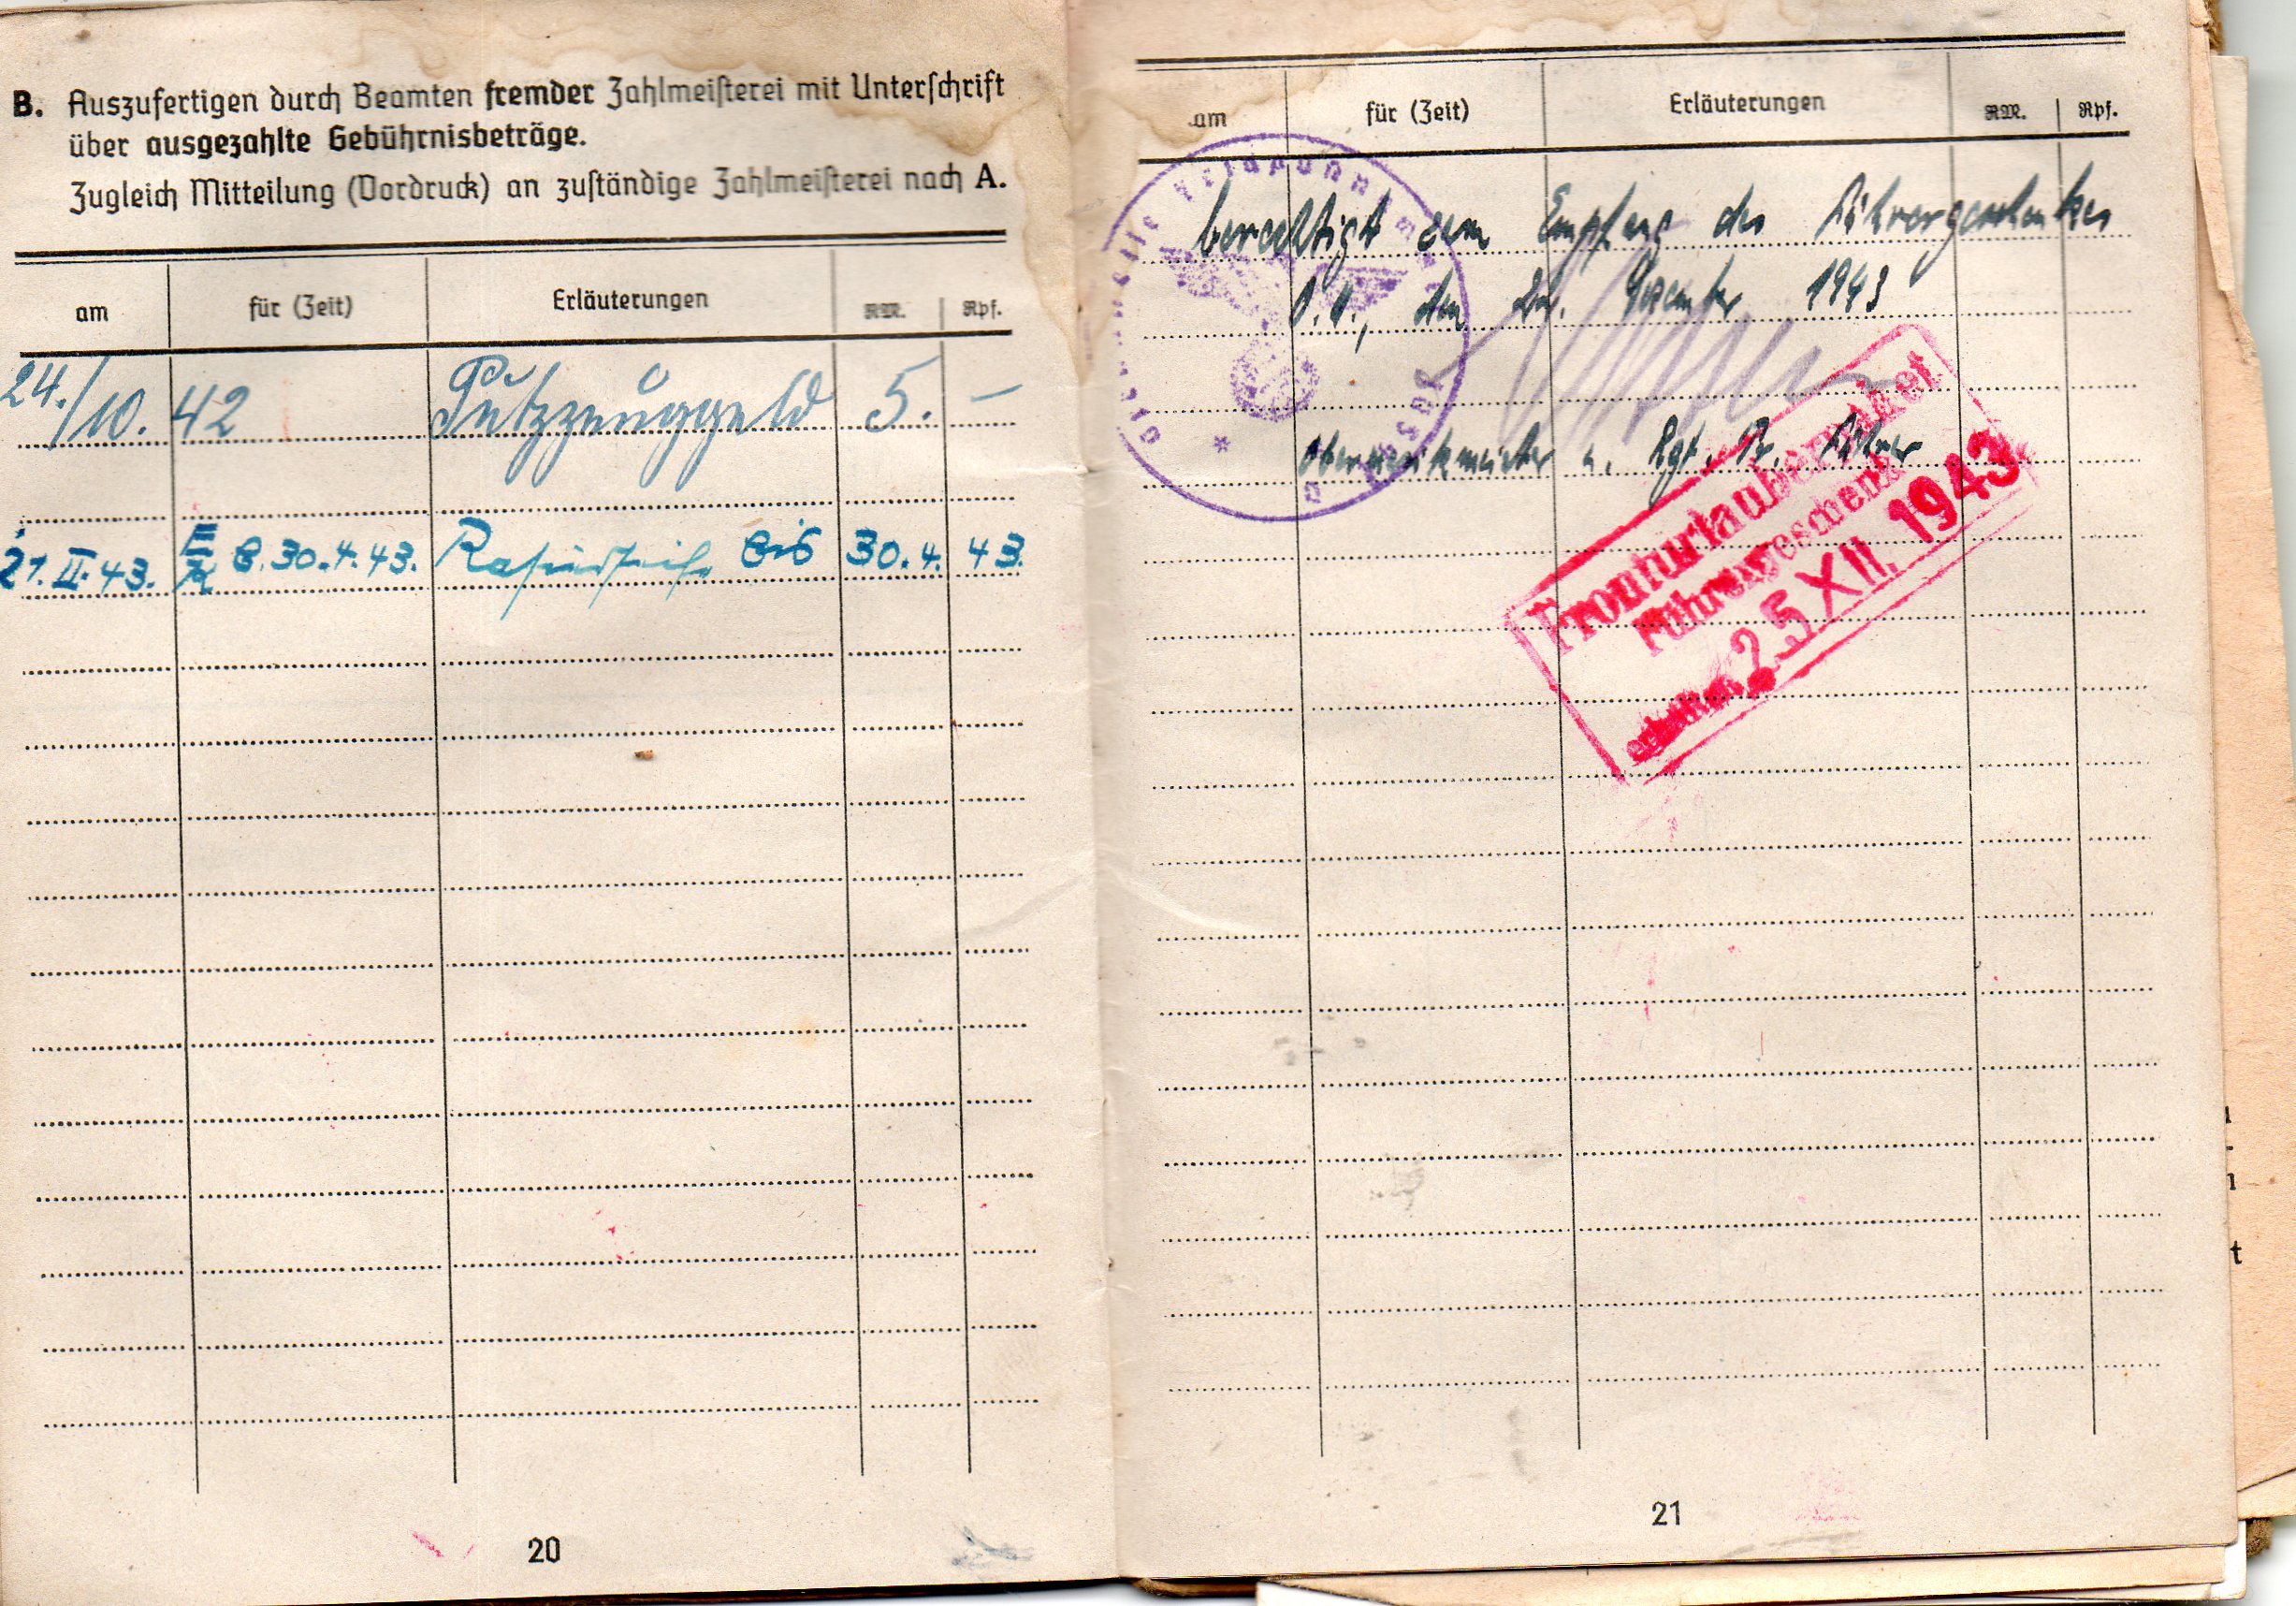 B. Auszufertigen durch Beamten fremder Zahlmeisterei mit Unterschrift
über ausgezahlte Gebührnisbeträge.
Zugleich Mitteilung (Vordruck) an zuständige Zahlmeisterei nach A.
am für (Zeit) Erläuterungen RM. Rpf.
24./10. 42 Putzzeuggeld 5. –
21. II. 43. B. 30.4.43. Rasierseife bis 30.4. 43.
20
am für (Zeit) Erläuterungen RM. Rpf.
berechtigt zum Empfang des Führergeschenkes
O.U., den Dezember 1943
Obermusikmeister u. Rgt. Tr. Führer
Dienststelle Feldpostnummer
Fronturlauber
Führergeschenk
erhalten 25 XII. 1943
21